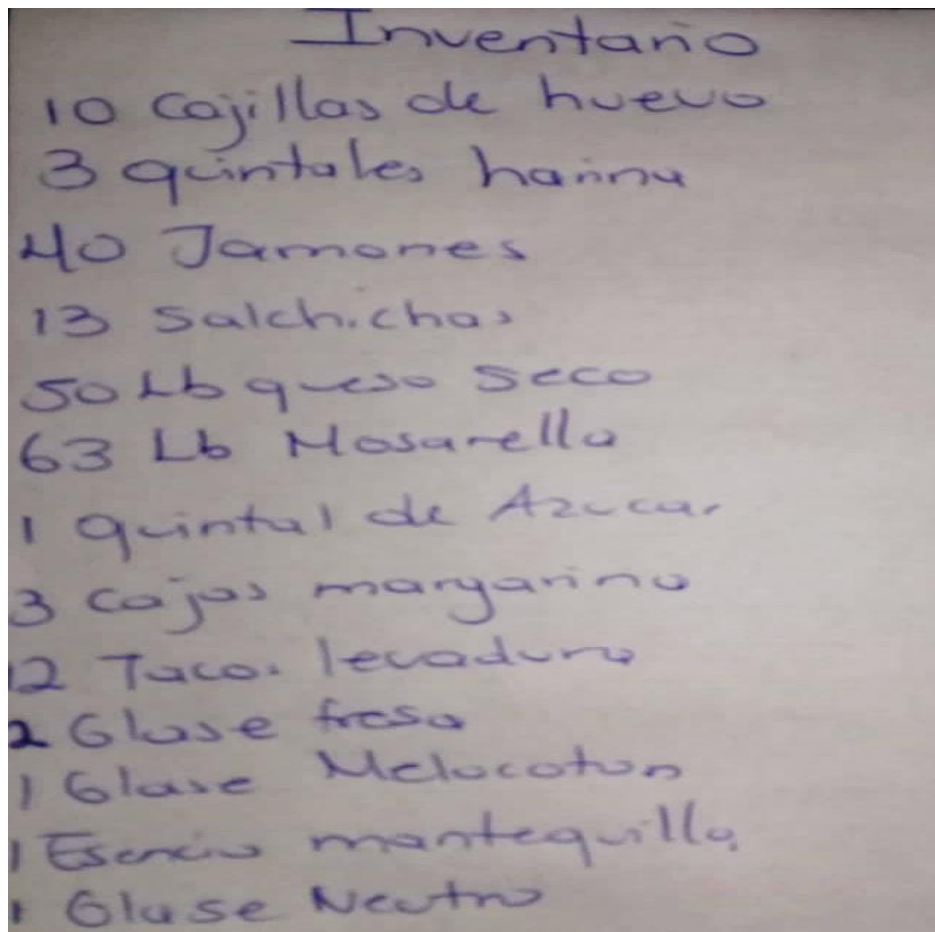 Inventario
10 Cajillas de huevo
3 quintales harina
40 Jamones
13 Salchichas
50 Lb queso seco
63 Lb Mosarella
1 quintal de Azucar
3 Cajas margarina
12 Tacos levadura
2 Glase fresa
1 Glase Melocoton
1 Esencia mantequilla
1 Glase Neutro